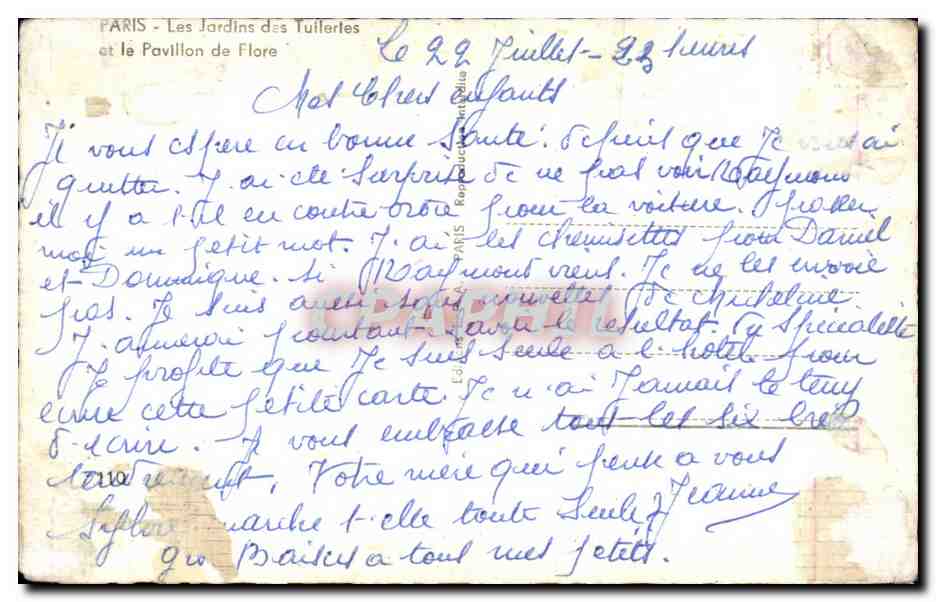 PARIS - Les Jardins des Tuileries
et le Pavillon de Flore
Le 22 Juillet - 23 heures
Mes Chers enfants
Je vous espere en bonne Santé. depuis que Je vous ai
quitter. J.ai ete Surpris de ne pas voir Raymon
il y a t-il en contre ordre pour la voiture.
moi un petit mot. J.ai les chemisettes pour Daniel
et Dominique. Si Raymont viens. Je ne les envoie
pas. Je suis aussi sans nouvelles de Micheline
J.aimerai pourtant savoir le resultat. du Spécialiste
Je profite que Je suis seule a l.hotel pour
ecrire cette petite carte. Je n.ai Jamais le temp
d.ecrire. Je vous embrasse tout les six bien
tendrement. Votre mère qui pense a vous
Jeanne
marche t-elle toute Seule?
gros Baises a tous mes petits.
110
Editions d'Art PARIS Reproduction Interdite
CPAPHIL